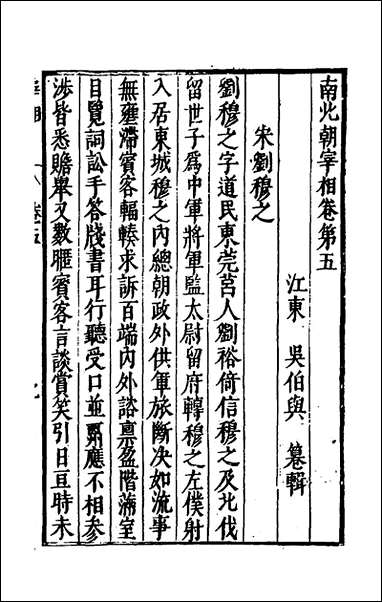 南北朝宰相卷第五
江東 吳伯與 纂輯
宋劉穆之
劉穆之字道民東莞莒人劉裕倚信穆之及北伐
留世子爲中軍將軍監太尉留府轉穆之左僕射
入居東城穆之內總朝政外供軍旅斷決如流事
無壅滯賓客輻輳求訴百端內外諮稟盈階滿室
目覽詞訟手答牋書耳行聽受口並酬應不相參
涉皆悉贍舉又數暱賓客言談賞笑引日亘時未
卷之五